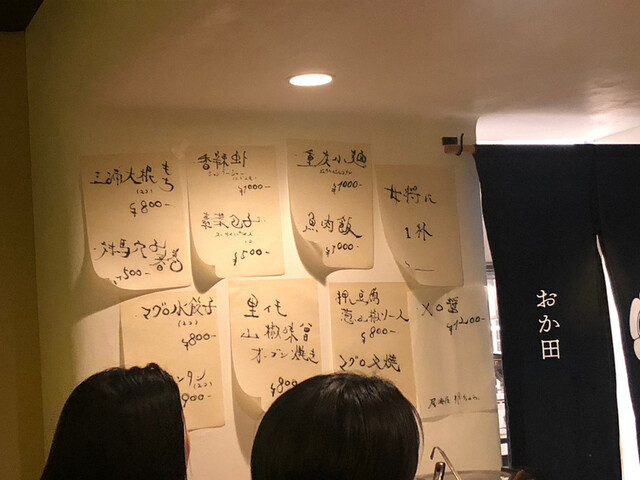 三浦大根もち
(2コ)
¥800-
対馬穴子
春巻
¥500-
香辣虾
¥1000-
素菜包子
¥500-
重慶小麺
¥1000-
魚肉飯
¥1000-
女将に
1杯
マグロ水餃子
(2コ)
¥800-
ンタン
(2コ)
900-
里イモ
山椒味噌
オーブン焼き
¥800
押し豆腐
葱山椒ソース
¥800-
マグロ叉焼
メロ醤
¥1200-
おか田